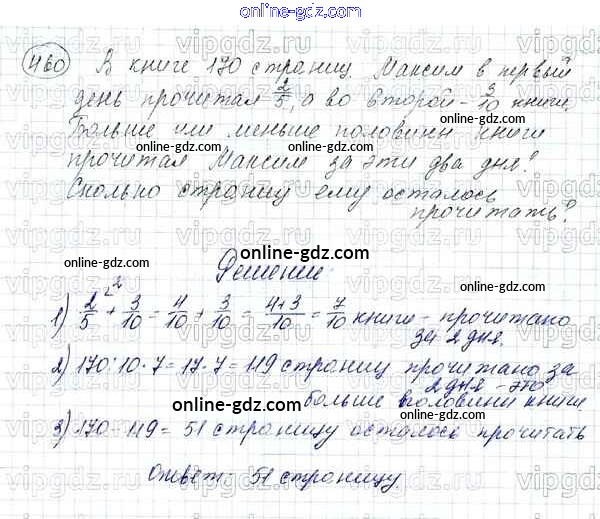 online-gdz.com
460 В книге 170 страниц. Максим в первый
день прочитал 2/5, а во второй - 3/10 книги.
Больше или меньше половины книги
прочитал Максим за эти два дня?
Сколько страниц ему осталось
прочитать?
online-gdz.com
online-gdz.com
Решение:
1) 2/5 + 3/10 = 4/10 + 3/10 = (4+3)/10 = 7/10 книги - прочитано
за 2 дня.
online-gdz.com
2) 170 : 10 · 7 = 17 · 7 = 119 страниц прочитано за
2 дня - это
больше половины книги.
online-gdz.com
3) 170 - 119 = 51 страницу осталось прочитать
Ответ: 51 страницу.
online-gdz.com